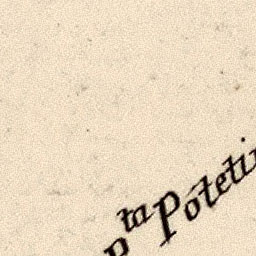 P.ta Póteti